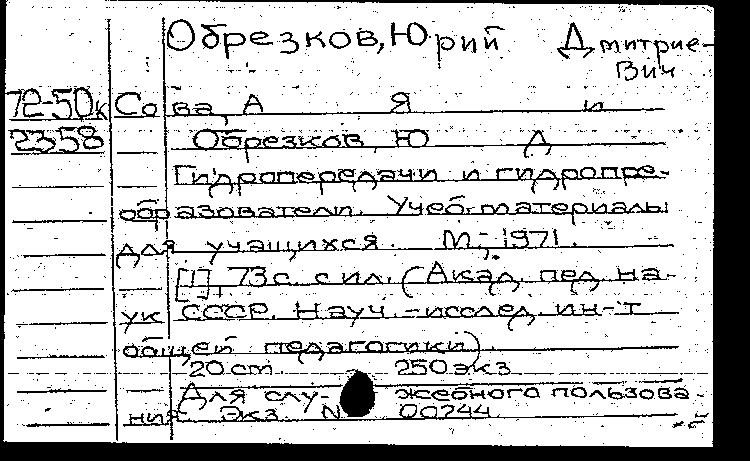 Обрезков, Юрий Дмитрие-
вич
72-50к Сова, А Я и
2358 Обрезков, Ю Д
Гидропередачи и гидропре-
образователи. Учеб. материалы
для учащихся. М., 1971.
[1], 73 с. с ил. (Акад. пед. на-
ук СССР. Науч.-исслед. ин-т
общей педагогики).
20 cm. 250 экз.
Для слу- жебного пользова-
ния. Экз. N 00244